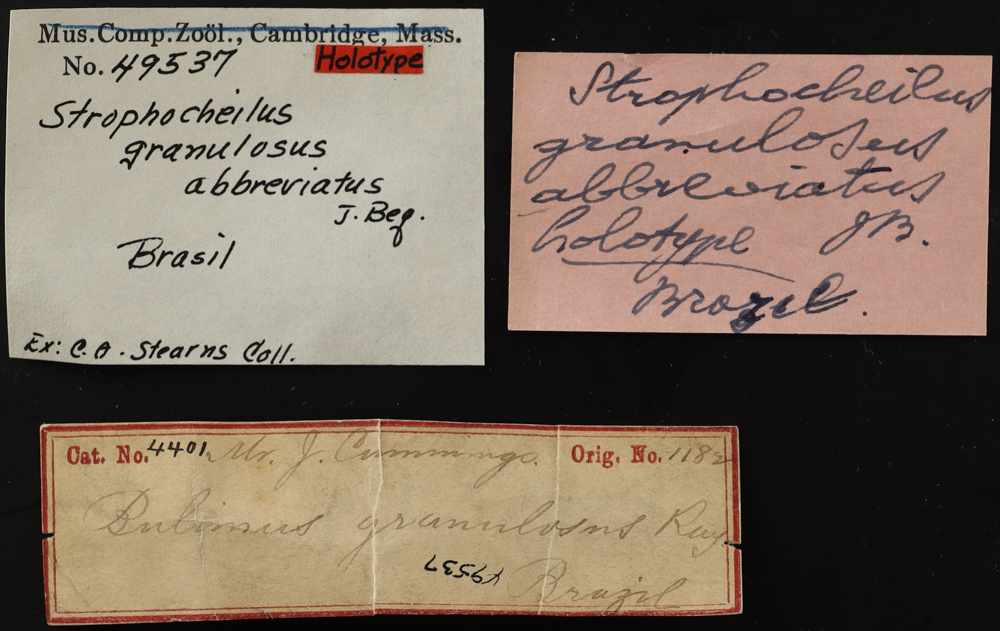 Mus.Comp.Zoöl., Cambridge, Mass.
No. 49537 Holotype
Strophocheilus
granulosus
abbreviatus
J. Beq.
Brasil
Ex: C. A. Stearns Coll.
Strophocheilus
granulosus
abbreviatus
holotype JB.
Brazil.
Cat. No. 4401 Mr. J. Cummings. Orig. No. 1182
Bulimus granulosus Ray
49537
Brazil